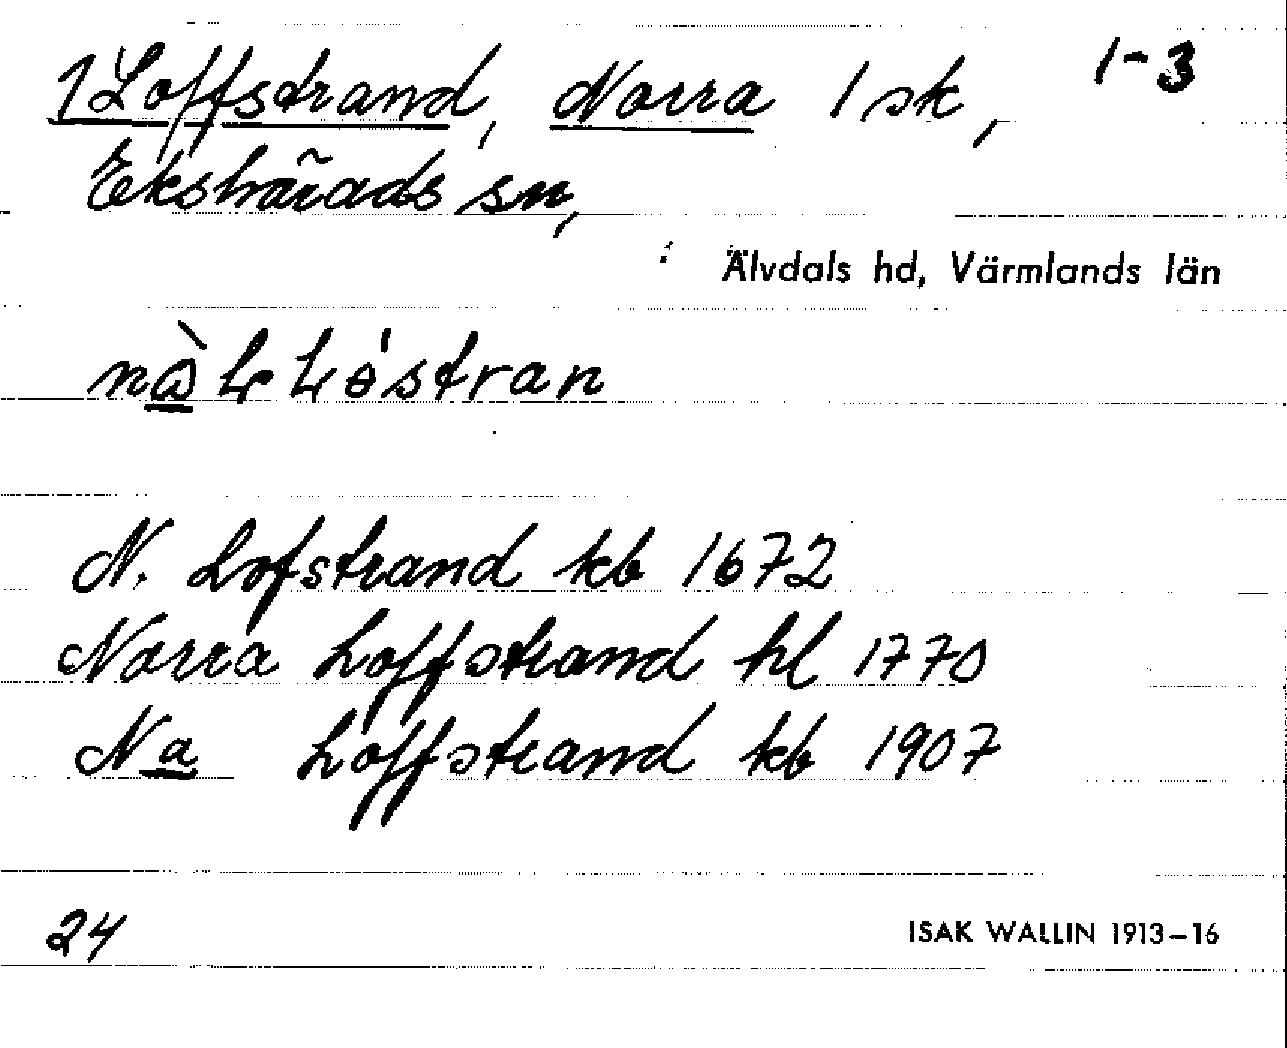 1 Loffstrand, Norra 1 sk, 1-3
Ekshärads sn,
Älvdals hd, Värmlands län
N. Lofstrand kb 1672
Norra Loffstrand hl 1770
Na Loffstrand kb 1907
24
ISAK WALLIN 1913–16